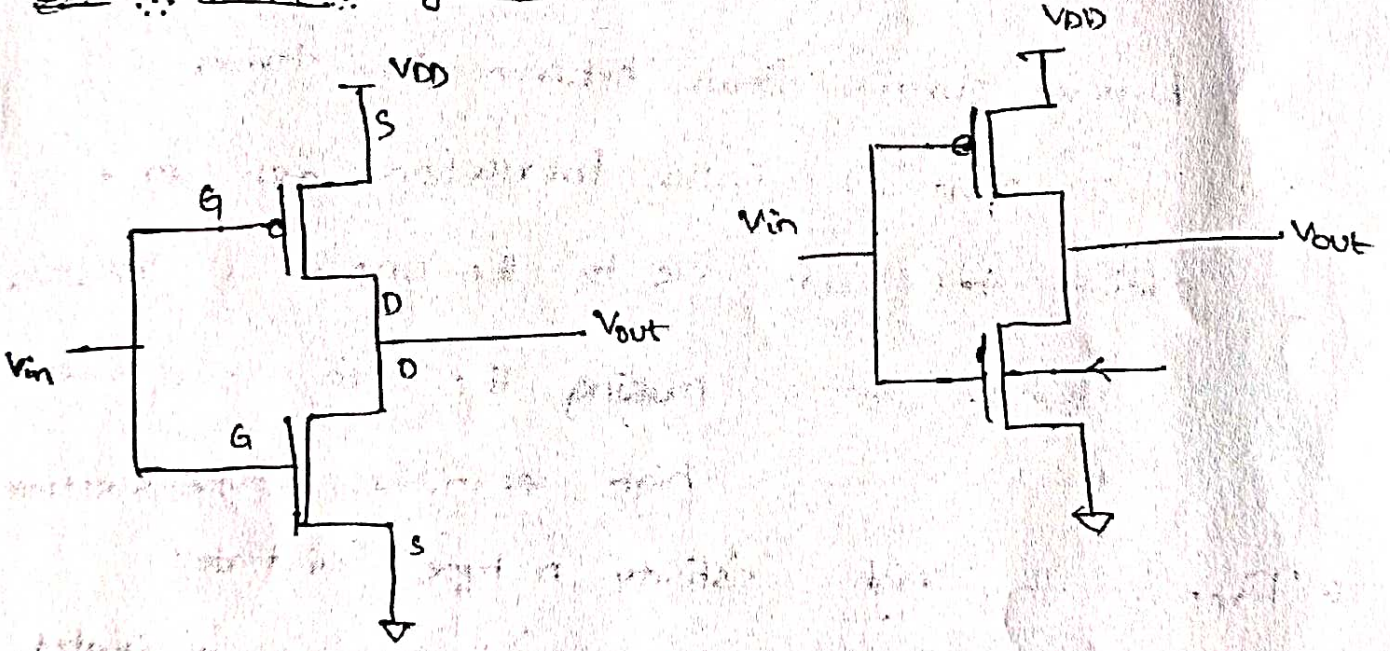 VDD
S
G
D
Vin
Vout
D
G
S
VDD
Vin
Vout